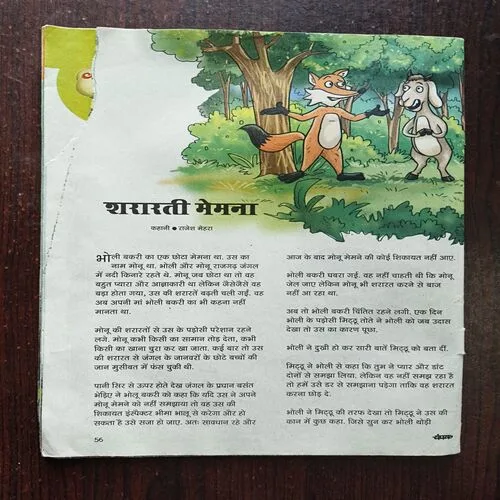 शरारती मेमना
कहानी ● राजेश मेहरा
भोली बकरी का एक छोटा मेमना था. उस का
नाम मोनू था. भोली और मोनू राजगढ़ जंगल
में नदी किनारे रहते थे. मोनू जब छोटा था तो वह
बहुत प्यारा और आज्ञाकारी था लेकिन जैसेजैसे वह
बड़ा होता गया, उस की शरारतें बढ़ती चली गईं. वह
अब अपनी मां भोली बकरी का भी कहना नहीं
मानता था.
मोनू की शरारतों से उस के पड़ोसी परेशान रहने
लगे. मोनू कभी किसी का सामान तोड़ देता, कभी
किसी का खाना चुरा कर खा जाता. कई बार तो उस
की शरारत से जंगल के जानवरों के छोटे बच्चों की
जान मुसीबत में फंस चुकी थी.
पानी सिर से ऊपर होते देख जंगल के प्रधान बसंत
भेड़िए ने भोलू बकरी को कहा कि यदि उस ने अपने
मोनू मेमने को नहीं समझाया तो वह उस की
शिकायत इंस्पेक्टर भीमा भालू से करेगा और हो
सकता है उसे सजा हो जाए. अतः सावधान रहे और
आज के बाद मोनू मेमने की कोई शिकायत नहीं आए.
भोली बकरी घबरा गई. वह नहीं चाहती थी कि मोनू
जेल जाए लेकिन मोनू भी शरारत करने से बाज
नहीं आ रहा था.
अब तो भोली बकरी चिंतित रहने लगी. एक दिन
भोली के पड़ोसी मिट्ठू तोते ने भोली को जब उदास
देखा तो उस का कारण पूछा.
भोली ने दुखी हो कर सारी बातें मिट्ठू को बता दीं.
मिट्ठू ने भोली से कहा कि तुम ने प्यार और डांट
दोनों से समझा लिया. लेकिन वह नहीं समझ रहा है
तो हमें उसे डर से समझाना पड़ेगा ताकि वह शरारत
करना छोड़ दे.
भोली ने मिट्ठू की तरफ देखा तो मिट्ठू ने उस की
कान में कुछ कहा. जिसे सुन कर भोली थोड़ी
56
चंपक